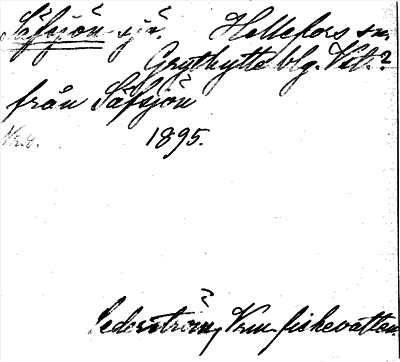 Säfsjön sjö. Hellefors sn,
Grythytte blg. Vstm.?
från Säfsjön
1895.
Cederström, Vrm. fiskevatten